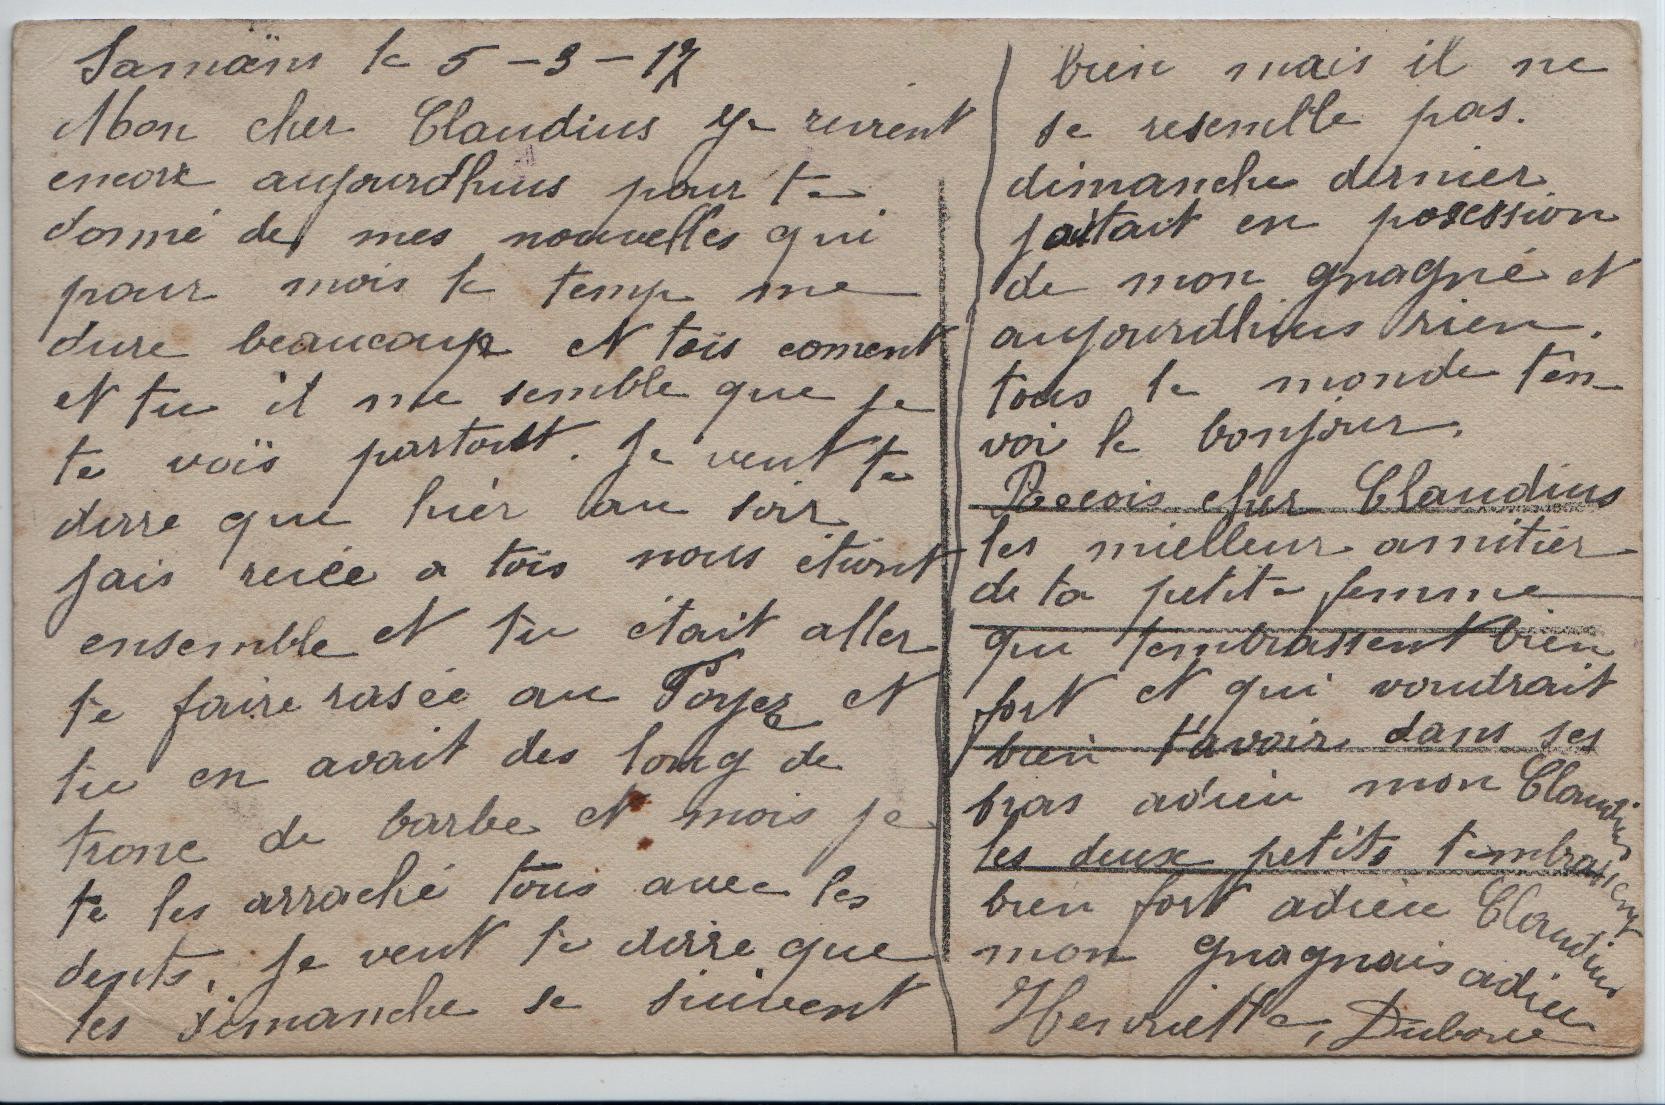 Samäins le 5 - 3 - 17
Mon cher Claudius ye revient
encore aujourdhuis pour te
donné de mes nouvelles qui
pour mois le temp me
dure beaucoup et tois coment
et tu il me semble que je
te voïs partout. Je vent te
dirre que hièr au soir
jais revée a tois nous étiont
ensemble et tu était aller
te faire rasée au Poyez et
tu en avait des long de
trone de barbe et mois je
te les arraché tous avec les
dents. Je vent te dirre que
les dimanche se suivent
bien mais il ne
se resemble pas.
dimanche dernier
jaitait en posession
de mon gnagné et
aujourdhuis rien.
tous le monde t'en
voi le bonjour.
Recois cher Claudius
les mielleur amitier
de ta petite femme
qui tembrassent bien
fort et qui voudrait
bien t'avoir dans ses
bras adieu mon Claudius
les deux petits tembrassent
bien fort adieu Claudius
mon gnagnais adieu
Henriette, Duboue